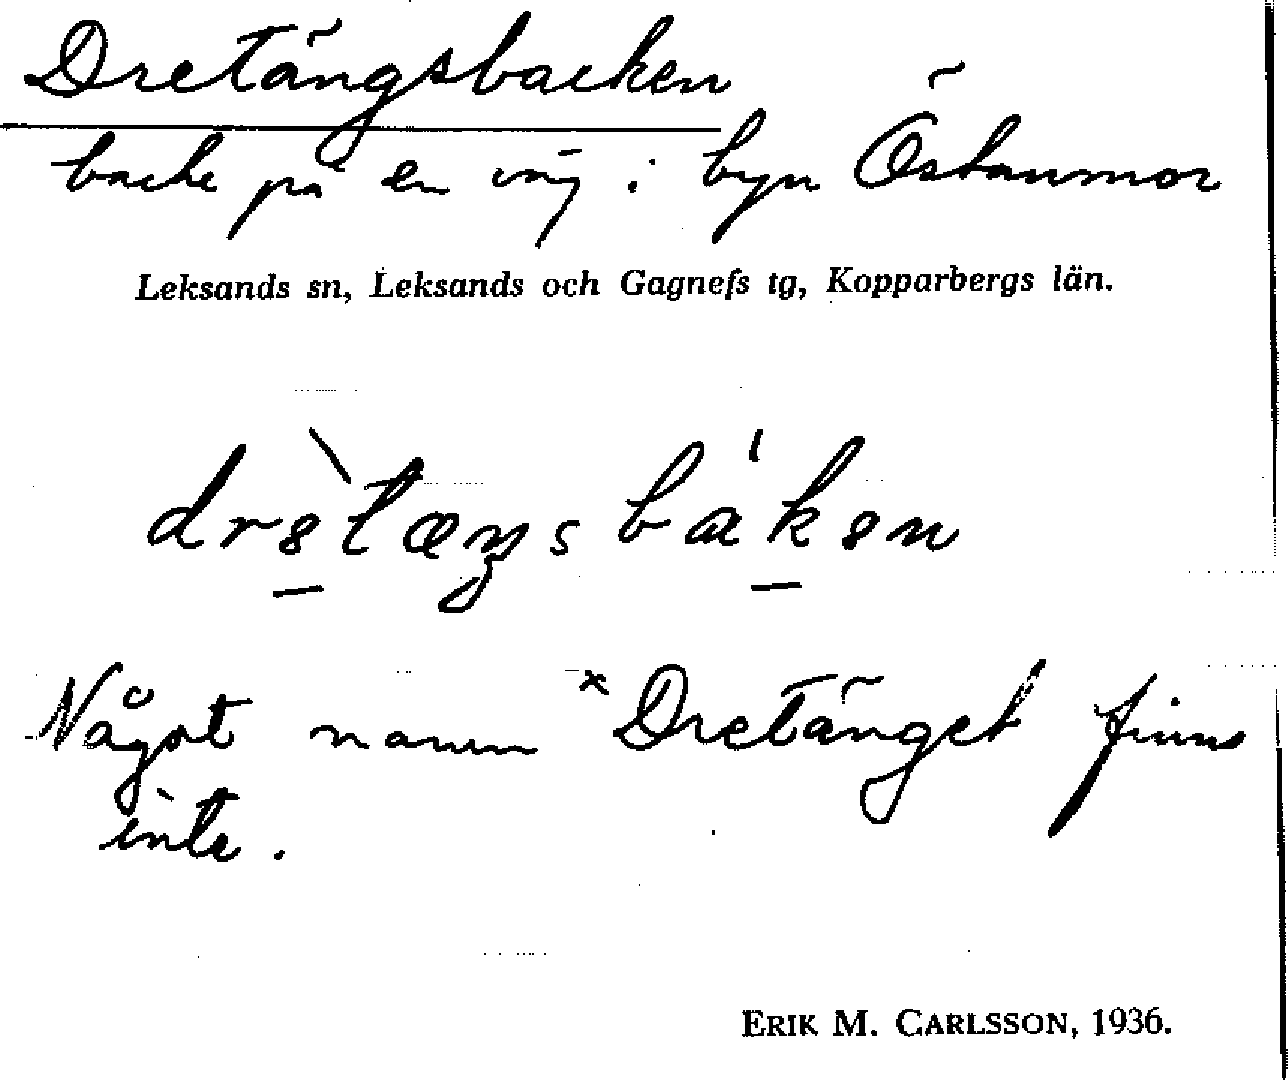 Dretängsbacken
backe på en väg i byn Östanmor
Leksands sn, Leksands och Gagnefs tg, Kopparbergs län.
Något namn *Dretänget finns
inte.
ERIK M. CARLSSON, 1936.